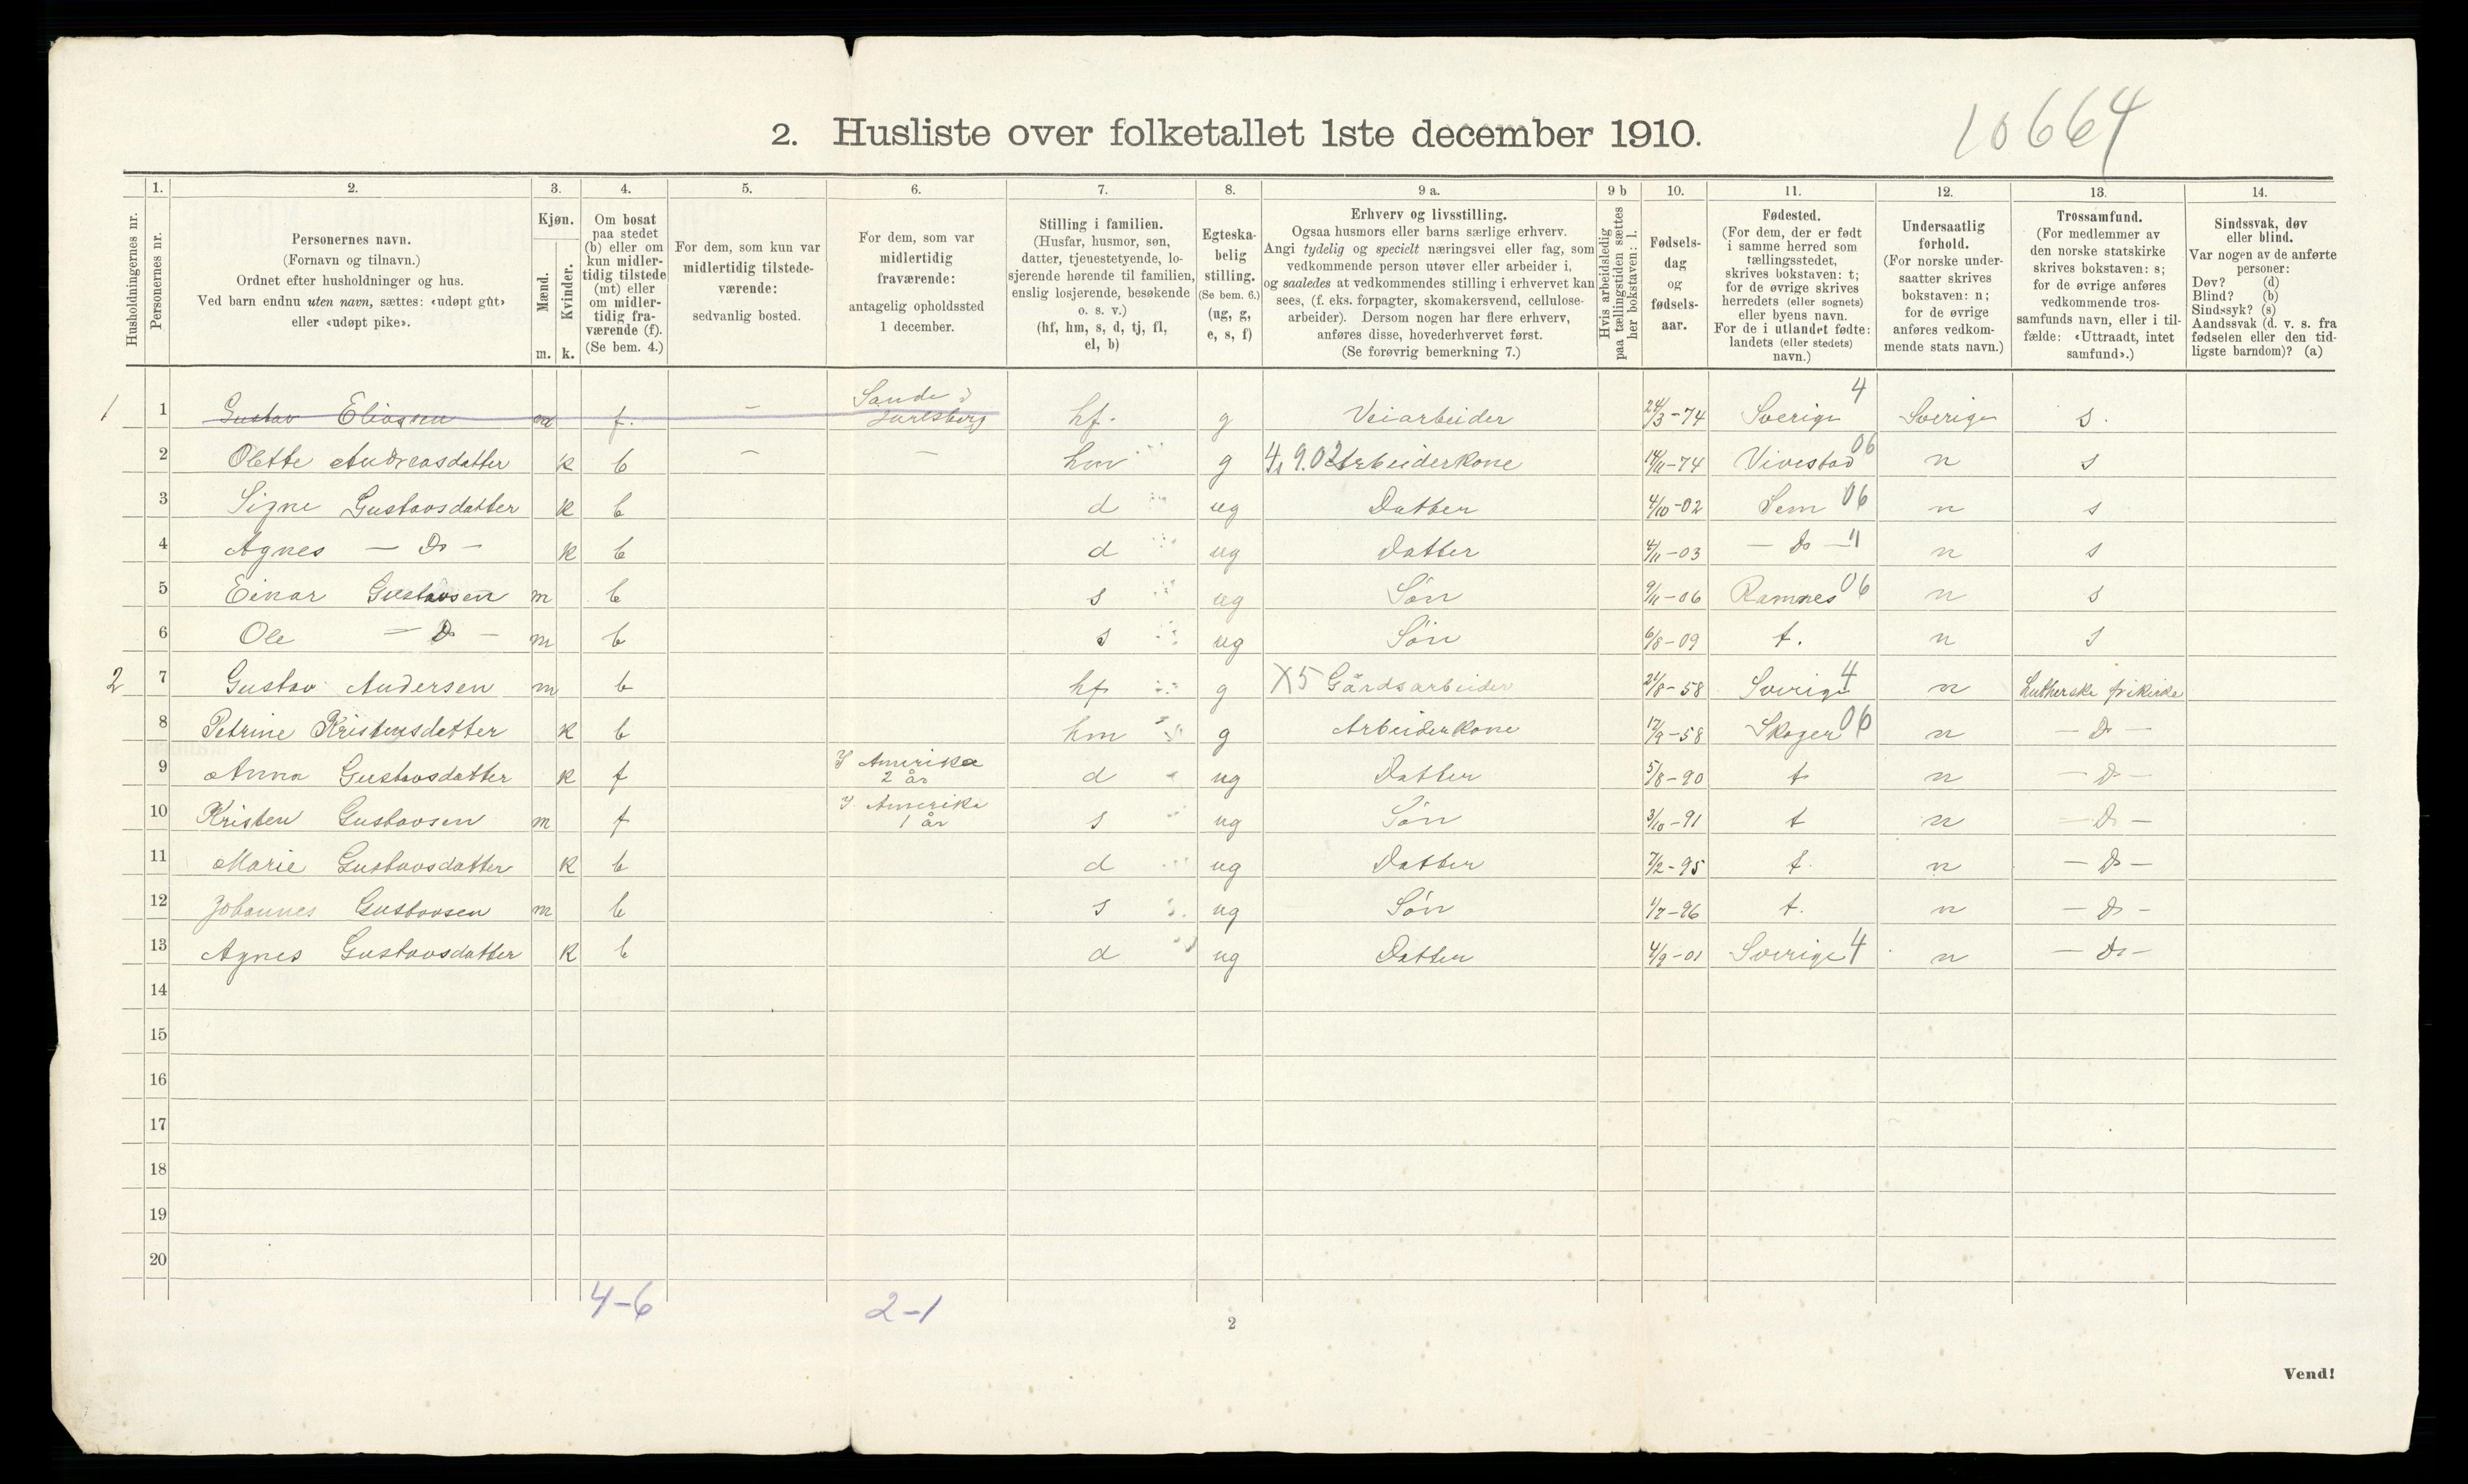 10664
2. Husliste over folketallet 1ste december 1910.
1. 2. 3. 4. 5. 6. 7. 8. 9 a. 9 b 10. 11. 12. 13. 14.
Husholdningernes nr.
Personernes nr.
Personernes navn.
(Fornavn og tilnavn.)
Ordnet efter husholdninger og hus.
Ved barn endnu uten navn, sættes: «udøpt gut»
eller «udøpt pike».
Kjøn.
Mænd.
Kvinder.
m. k.
Om bosat
paa stedet
(b) eller om
kun midler-
tidig tilstede
(mt) eller
om midler-
tidig fra-
værende (f).
(Se bem. 4.)
For dem, som kun var
midlertidig tilstede-
værende:
sedvanlig bosted.
For dem, som var
midlertidig
fraværende:
antagelig opholdssted
1 december.
Stilling i familien.
(Husfar, husmor, søn,
datter, tjenestetyende, lo-
sjerende hørende til familien,
enslig losjerende, besøkende
o. s. v.)
(hf, hm, s, d, tj, fl,
el, b)
Egteska-
belig
stilling.
(Se bem. 6.)
(ug, g,
e, s, f)
Erhverv og livsstilling.
Ogsaa husmors eller barns særlige erhverv.
Angi tydelig og specielt næringsvei eller fag, som
vedkommende person utøver eller arbeider i,
og saaledes at vedkommendes stilling i erhvervet kan
sees, (f. eks. forpagter, skomakersvend, cellulose-
arbeider). Dersom nogen har flere erhverv,
anføres disse, hovederhvervet først.
(Se forøvrig bemerkning 7.)
Hvis arbeidsledig
paa tællingstiden sættes
her bokstaven: l.
Fødsels-
dag
og
fødsels-
aar.
Fødested.
(For dem, der er født
i samme herred som
tællingsstedet,
skrives bokstaven: t;
for de øvrige skrives
herredets (eller sognets)
eller byens navn.
For de i utlandet fødte:
landets (eller stedets)
navn.)
Undersaatlig
forhold.
(For norske under-
saatter skrives
bokstaven: n;
for de øvrige
anføres vedkom-
mende stats navn.)
Trossamfund.
(For medlemmer av
den norske statskirke
skrives bokstaven: s;
for de øvrige anføres
vedkommende tros-
samfunds navn, eller i til-
fælde: «Uttraadt, intet
samfund».)
Sindssvak, døv
eller blind.
Var nogen av de anførte
personer:
Døv? (d)
Blind? (b)
Sindssyk? (s)
Aandssvak (d. v. s. fra
fødselen eller den tid-
ligste barndom)? (a)
1 1 Gustav Eliasen m f. - Sande i Jarlsberg hf. g Veiarbeider 24/3-74 Sverige 4 Sverige s.
2 Olette Andreasdatter k b - - hm g 4,9.02 Arbeiderkone 14/11-74 Vivestad 06 n s
3 Signe Gustavsdatter k b d ug Datter 4/10-02 Sem 06 n s
4 Agnes - Do - k b d ug Datter 4/11-03 - Do - " n s
5 Einar Gustavsen m b s ug Søn 9/11-06 Ramnes 06 n s
6 Ole - Do - m b s ug Søn 6/8-09 t. n s
2 7 Gustav Andersen m b hf g X5 Gårdsarbeider 24/8-58 Sverige 4 n Lutherske frikirke
8 Petrine Kristensdatter k b hm g Arbeiderkone 17/9-58 Skoger 06 n - Do -
9 Anna Gustavsdatter k f I Amerika 2 år d ug Datter 5/8-90 t n - Do -
10 Kristen Gustavsen m f I Amerika 1 år s ug Søn 3/10-91 t n - Do -
11 Marie Gustavsdatter k b d ug Datter 7/2-95 t. n - Do -
12 Johannes Gustavsen m b s ug Søn 1/7-96 t. n - Do -
13 Agnes Gustavsdatter k b d ug Datter 4/9-01 Sverige 4 n - Do -
14
15
16
17
18
19
20
4-6 2-1
2
Vend!